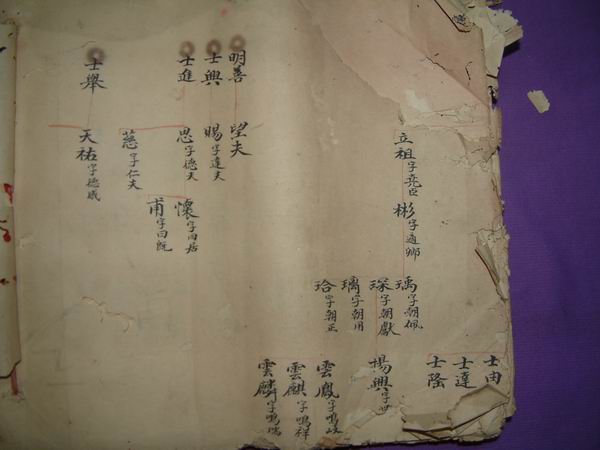 立祖字堯臣
彬字通鄉
瑀字朝佩
琛字朝獻
璃字朝用
珨字朝正
士由
士達
士隆
揚興字世
雲鳳字鳴岐
雲麒字鳴祥
雲麟字鳴瑞
明善
望夫
士興
賜字達夫
士進
思字德夫
慈字仁夫
懷字曰居
甫字曰既
士舉
天祐字德